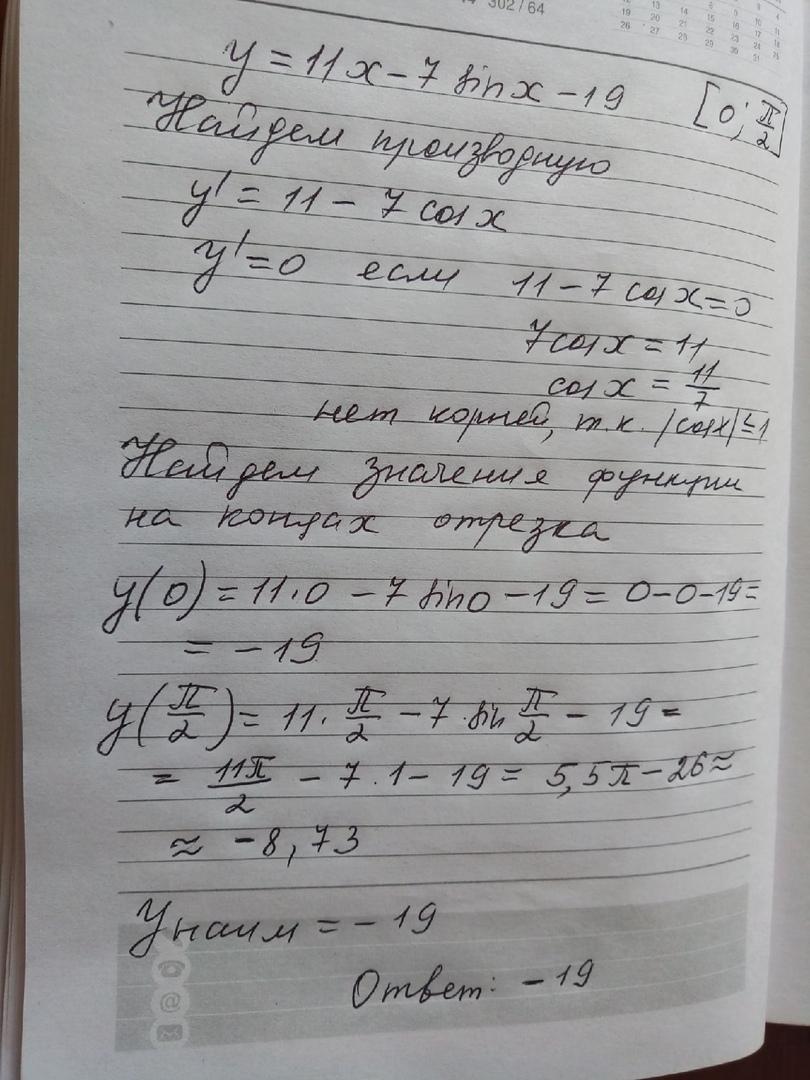 302 / 64
y = 11x - 7 sin x - 19 [0; π/2]
Найдем производную
y' = 11 - 7 cos x
y' = 0 если 11 - 7 cos x = 0
7 cos x = 11
cos x = 11/7
нет корней, т.к. |cos x| ≤ 1
Найдем значения функции
на концах отрезка
y(0) = 11·0 - 7 sin 0 - 19 = 0-0-19=
= -19
y(π/2) = 11·π/2 - 7·sin π/2 - 19 =
= 11π/2 - 7·1 - 19 = 5,5π - 26 ≈
≈ -8,73
Yнаим = -19
Ответ: -19